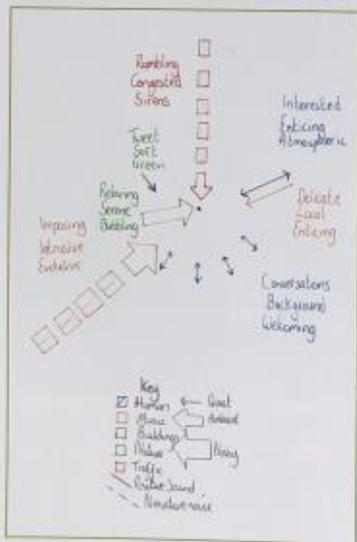 Rambling
Congested
Sirens
Interested
Enticing
Atmospheric
Tweet
Soft
Green
Relaxing
Serene
Bubbling
Delicate
Local
Enticing
Imposing
Intrusive
Exclusive
Conversations
Background
Welcoming
Key
Human
Quiet
Music
Ambient
Buildings
Nature
Noisy
Traffic
Positive Sound
Negative noise